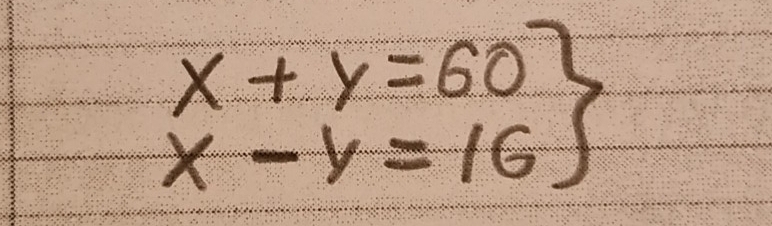 x + y = 60 }
x - y = 16